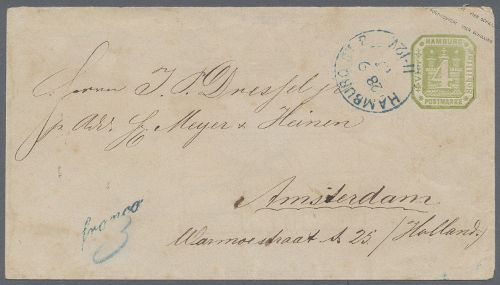 HAMBURG
4
POSTMARKE
HAMBURG
28
6
Herrn J. P. Dressel
p. Adr. H. Meyer & Heinen
Amsterdam
Warmoestraat 25 (Holland)
franco
3